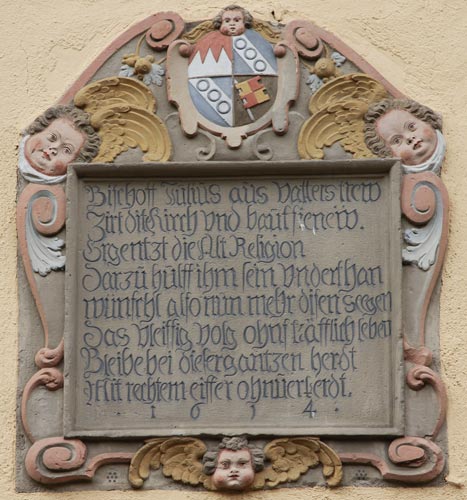 Bischoff Julius aus Vatters trew
Zirt dise Kirch vnd bauts sie new.
Ergentzt die Alt Religion
Darzu hülff ihm sein Vnderthan
wünscht also nun mehr disen segen
Das Vleissig volg ohnsträfflich leben
Bleibe bei dieser gantzen herdt
Mit rechtem eiffer ohnuerkerdt.
· 1 6 1 4 ·